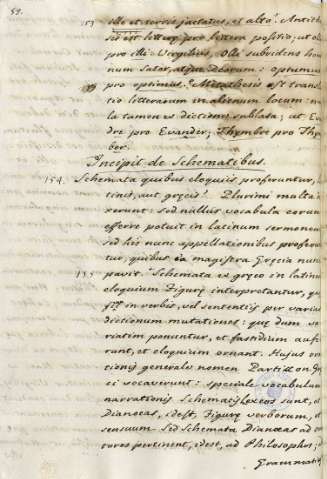 53.
153 ille et terris jactatus, et alto. Antithe
sis est litterę pro littera positio, ut
pro illi: Virgilius, Olli subridens homi
num Sator, atque Deorum: optumus
pro optimus. Metathesis est transla
tio litterarum in alienum locum: nul
la tamen ex dictione sublata; ut Evan
dre pro Evander; Thymbre pro Thym
ber.
Incipit de Schematibus.
154. Schemata quibus eloquiis proferuntur, la
tinis, aut gręcis? Plurimi multa di
xerunt: sed nullus vocabula eorum
efferre potuit in latinum sermonem
sed his nunc appellationibus proferun
tur, quibus ea magistra Gręcia nuncu
155 pavit. Schemata ex gręco in latinum
eloquium Figurę interpretantur, quę
fiunt in verbis, vel sententiis per varias
dictionum mutationes: quę dum va
riatim ponuntur, et fastidium aufe
runt, et eloquium ornant. Hujus ora
tionis generale nomen
ci vocaverunt: speciale vocabulum
narrationis Schemata Lexeos sunt, et
Dianoeas, idest, Figurę verborum, et
sensuum. Sed Schemata Dianoeas ad
tores pertinent, idest, ad Philosophos;
Grammatic